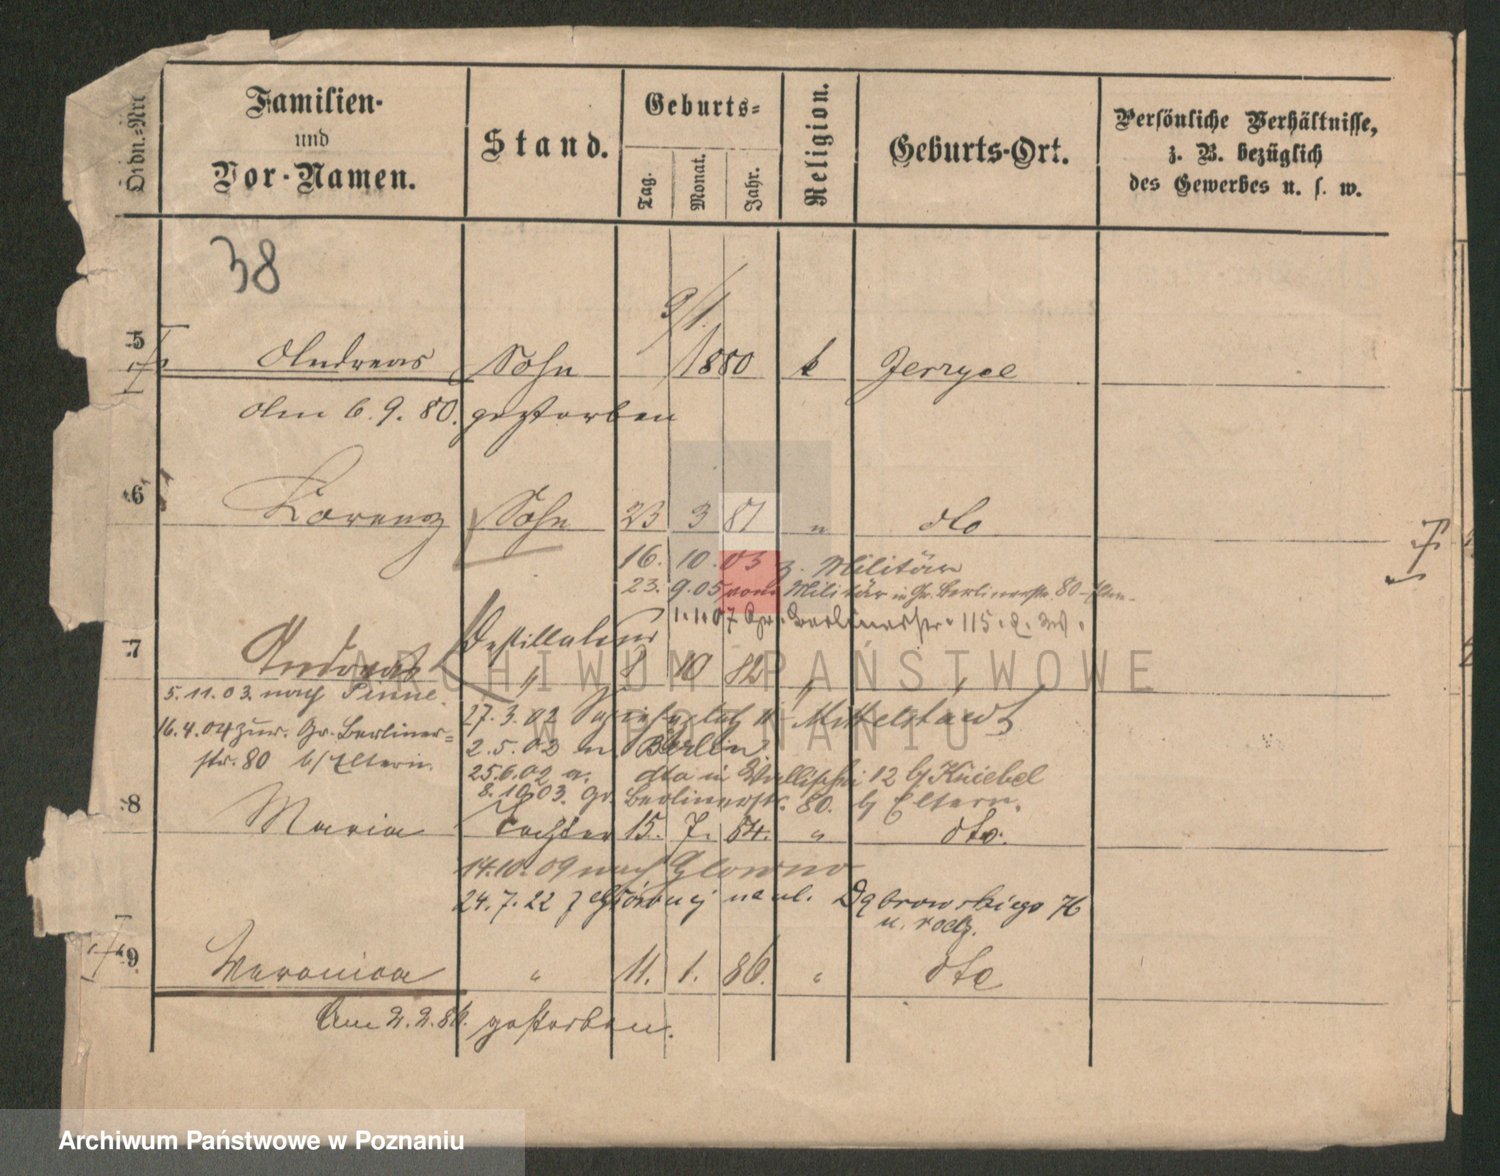 Ordn.-Nr.
Familien-
und
Vor-Namen.
Stand.
Geburts-
Tag.
Monat.
Jahr.
Religion.
Geburts-Ort.
Persönliche Verhältnisse,
z. B. bezüglich
des Gewerbes u. s. w.
38
9/1.
5 Andreas Sohn 1880 k Jerzyce
Am 6.9.80. gestorben
6 Lorenz Sohn 23 3 81 " dto
16. 10. 03 z. Militär
23. 9.05 vom Militär in Gr. Berlinerstr. 80
1.1.07 Gr. Berlinerstr. 115
Destillateur
7 Andreas " 8 10 82 "
5.11.03. nach Pinne.
27.3.02
16.4.04 zur. Gr. Berliner=
2.5.02 n Berlin
str. 80 b/Eltern.
25.6.02 dto in 12 b/ Kniebel
8.10.03. Gr. Berlinerstr. 80. b/ Eltern.
8 Maria Tochter 15. 7. 84. " dto.
14.10.09 nach Glowno
24.7.22 z Głównej na ul. Dąbrowskiego 76
u. rodz.
9 Veronica " 11. 1. 86. " dto
Am 2.2.86. gestorben.
ARCHIWUM PAŃSTWOWE
W POZNANIU
Archiwum Państwowe w Poznaniu